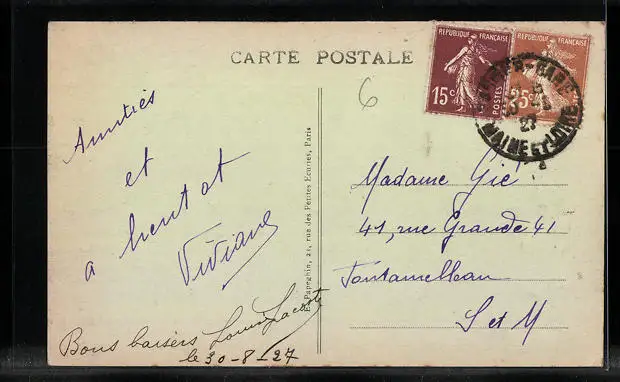 CARTE POSTALE
6
REPUBLIQUE FRANÇAISE
15c
POSTES
REPUBLIQUE FRANÇAISE
25c
GARE
27
MAINE ET LOIRE
Amitiés
et
a
Viviane
Bons baisers Louis
le 30-8-27
Papeghin, 21, rue des Petites Ecuries, Paris
Madame Gié
41, rue Grande 41
Fontainebleau
S et M